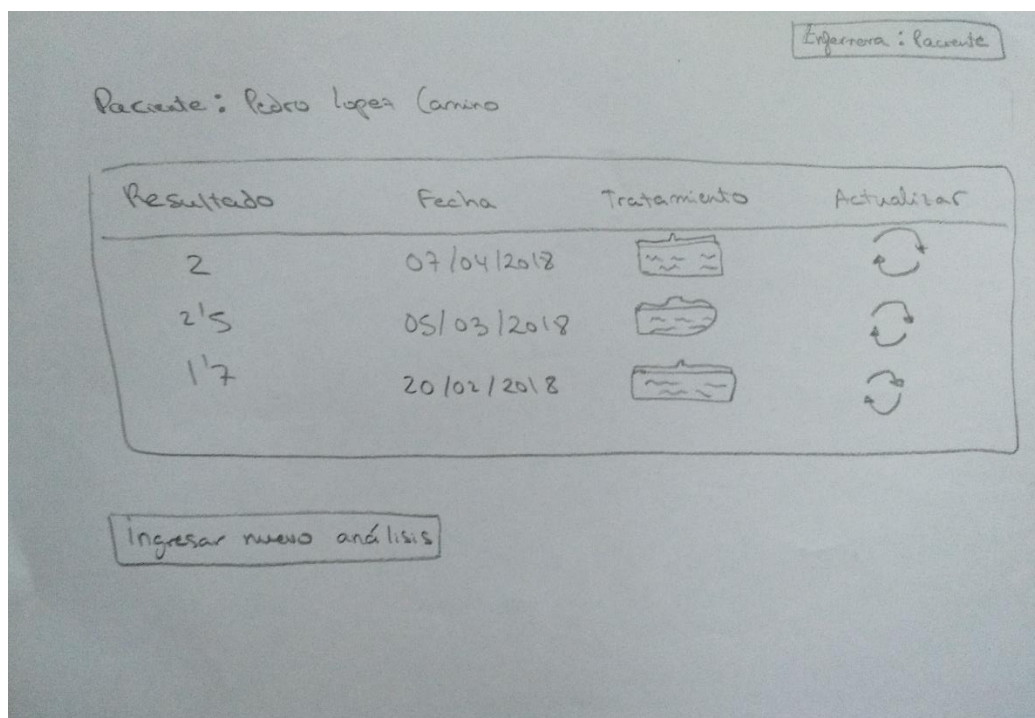 Enfermera : Paciente
Paciente : Pedro Lopez Camino
Resultado Fecha Tratamiento Actualizar
2 07/04/2018
2'5 05/03/2018
1'7 20/02/2018
Ingresar nuevo análisis